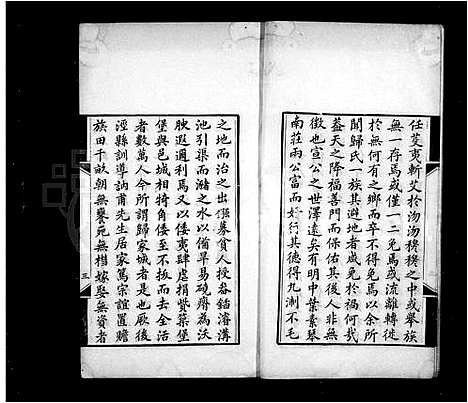 任芟夷斬艾於沕沕穆穆之中或舉族
無一存焉或僅一二免焉或流離轉徙
於無何有之鄉而卒不得免焉以余所
聞歸氏一族其避地者咸免於禍何哉
蓋天之降福善門而保佑其後人非無
徵也宣公之世澤遠矣有明中葉素琴
南莊兩公富而好行其德得九淛不毛
之地而治之出強募貧人授畚鍤濬溝
池引渠而瀦之水以備旱易磽瘠為沃
腴遐邇利焉又以倭夷肆虐捐貲築堡
堡與邑城相掎角倭至不拔而去全活
者數萬人今所謂歸家城者是也厥後
涇縣訓導訥甫先生居家篤宗誼置贍
族田千畝朝無饔死無柑嫁娶無資者
三